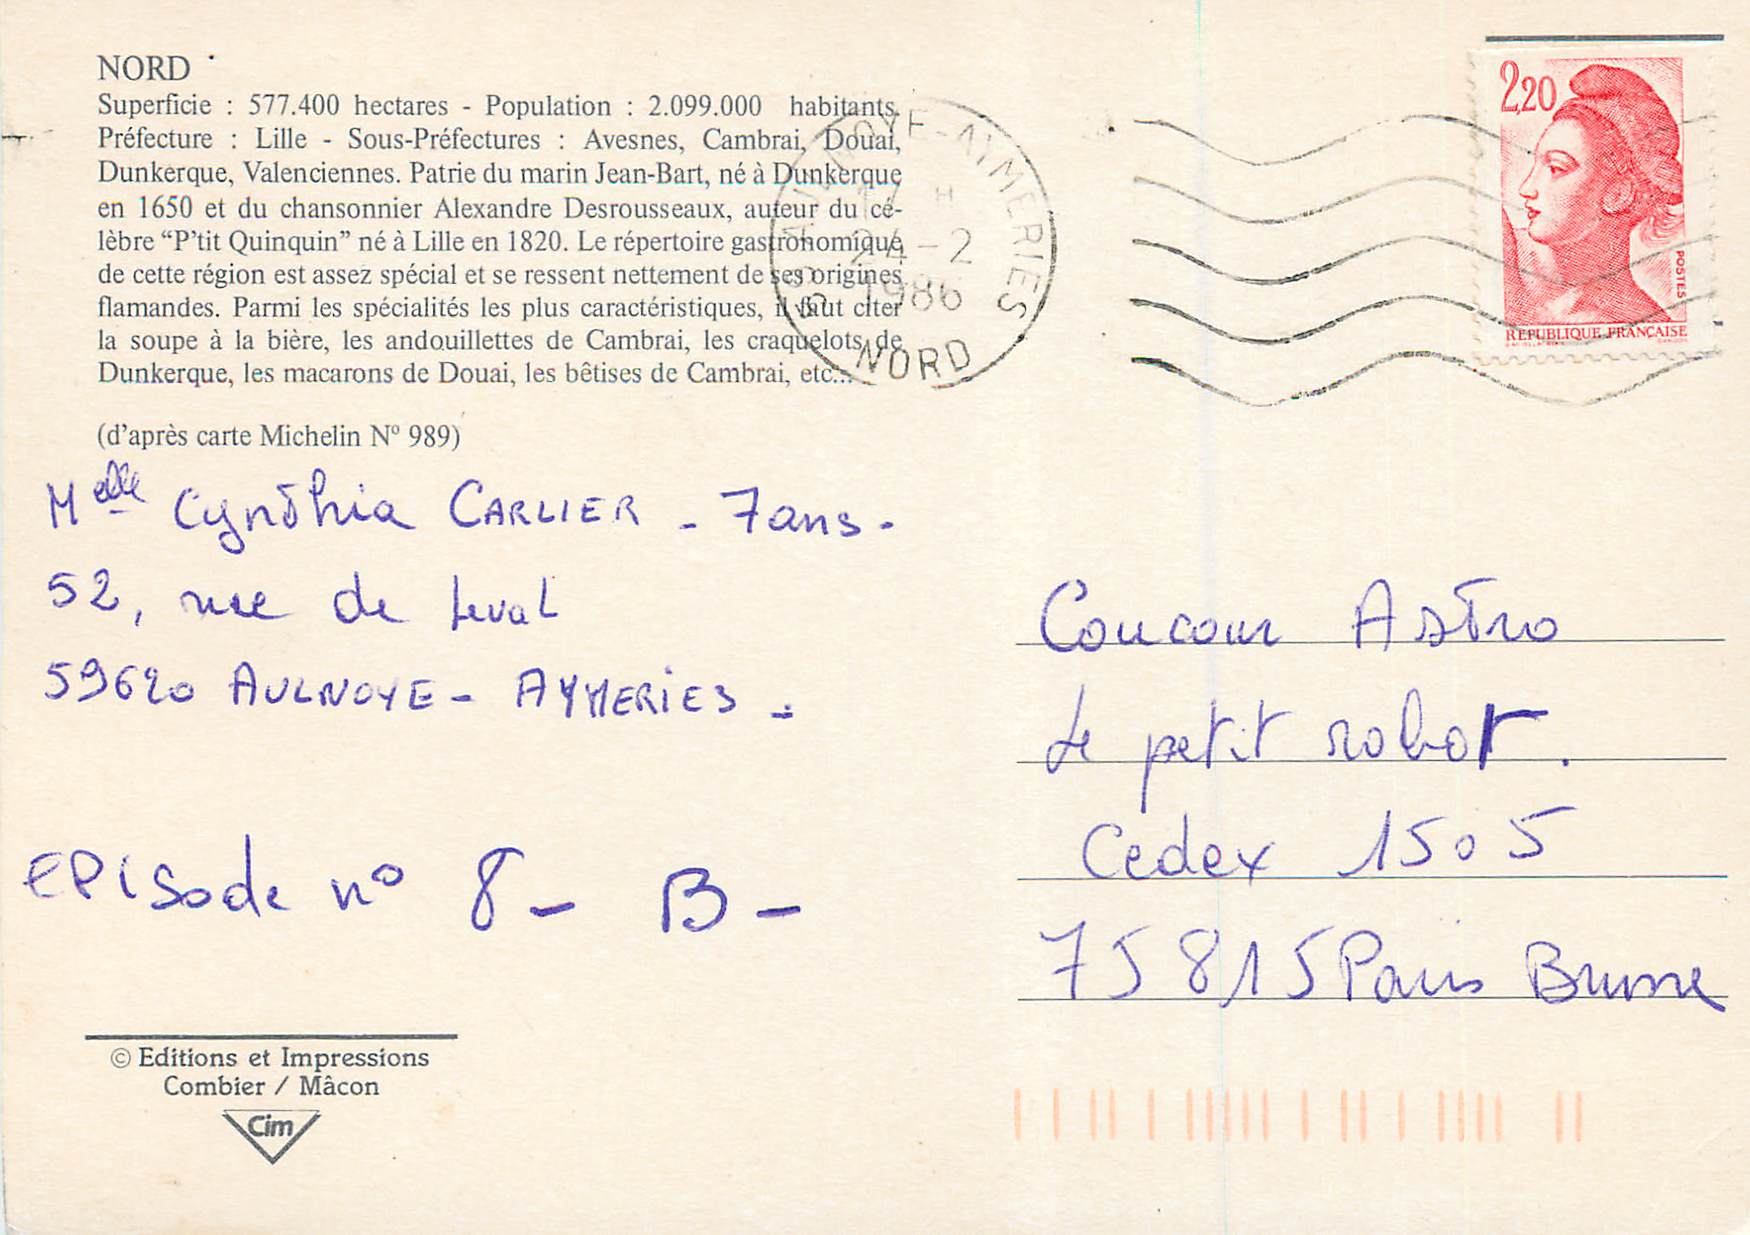 NORD
Superficie : 577.400 hectares - Population : 2.099.000 habitants.
Préfecture : Lille - Sous-Préfectures : Avesnes, Cambrai, Douai,
Dunkerque, Valenciennes. Patrie du marin Jean-Bart, né à Dunkerque
en 1650 et du chansonnier Alexandre Desrousseaux, auteur du cé-
lèbre “P'tit Quinquin” né à Lille en 1820. Le répertoire gastronomique
de cette région est assez spécial et se ressent nettement de ses origines
flamandes. Parmi les spécialités les plus caractéristiques, il faut citer
la soupe à la bière, les andouillettes de Cambrai, les craquelots de
Dunkerque, les macarons de Douai, les bêtises de Cambrai, etc...
(d'après carte Michelin Nº 989)
Melle Cynthia CARLIER - 7 ans -
52, rue de Leval
59620 AULNOYE - AYMERIES -
EPISode nº 8 - B -
© Editions et Impressions
Combier / Mâcon
Cim
AULNOYE-AYMERIES
17 H
24-2
1986
59 NORD
2,20
POSTES
REPUBLIQUE FRANÇAISE
Coucou Astro
Le petit robot.
Cedex 1505
75815 Paris Brune